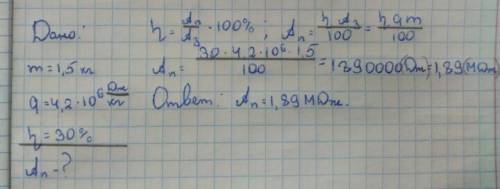 Дано:
m = 1,5 кг
q = 4,2·10⁶ Дж/кг
η = 30%
Aп - ?
η = Aп/Aз · 100% ; Aп = η Aз/100 = η q m/100
Aп = 30·4,2·10⁶·1,5/100 = 1890000(Дж)=1,89(МДж)
Ответ: Aп = 1,89 МДж.